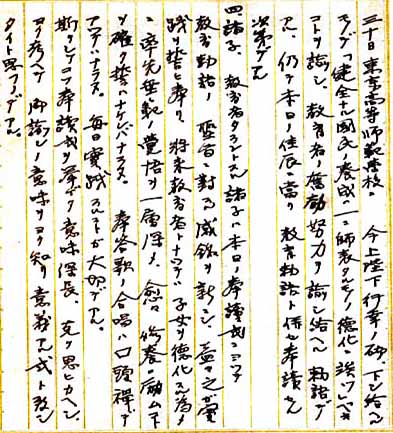 三十日東京高等師範学校ニ 今上陛下行幸ノ砌下シ給ヘル
モノデ「健全ナル国民ノ養成ハ一ニ師表タルモノノ徳化ニ俟ツ」トノ
コトヲ諭シ、教育者ノ奮励努力ヲ諭シ給ヘル勅語デ
アル、仍テ本日ノ佳辰ニ当リ教育勅語ト併セ奉読スル
次第デアル
四、諸子、教育者タラントスル諸子ハ本日ノ奉読式ニヨッテ
教育勅語ノ聖旨ニ対スル感銘ヲ新ニシ益々之ガ実
践ヲ誓ヒ奉リ、将来教育者トナッテハ子女ヲ徳化スル為メ
ニ率先垂範ノ覚悟ヲ一層深メ、愈々修養ニ励ムコト
ヲ確ク誓ハナケレバナラヌ。奉答歌ノ合唱ハ口頭禅デ
アッテハナラヌ。毎日実践スルコトガ大切デアル。
斯クシテコソ奉読式ヲ挙グル意味深長、克ク思ヒカヘシ
ヨク考ヘテ御諭シノ意味ヲヨク知リ意義アル式ト致シ
タイト思フノデアル。